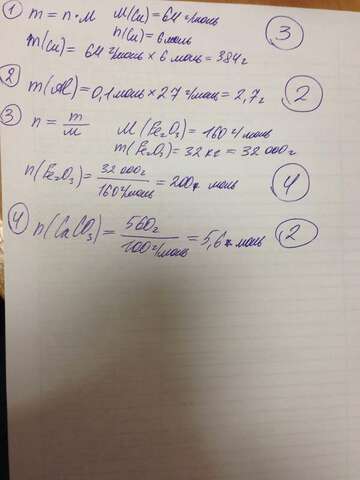 ① m = n · M   M(Cu) = 64 г/моль
n(Cu) = 6 моль   ③
m(Cu) = 64 г/моль × 6 моль = 384 г
2 m(Al) = 0,1 моль × 27 г/моль = 2,7 г   ②
③ n = m/M   M(Fe₂O₃) = 160 г/моль
m(Fe₂O₃) = 32 кг = 32 000 г
n(Fe₂O₃) = 32 000 г / 160 г/моль = 200 моль   ④
④ n(CaCO₃) = 560 г / 100 г/моль = 5,6 моль   ②